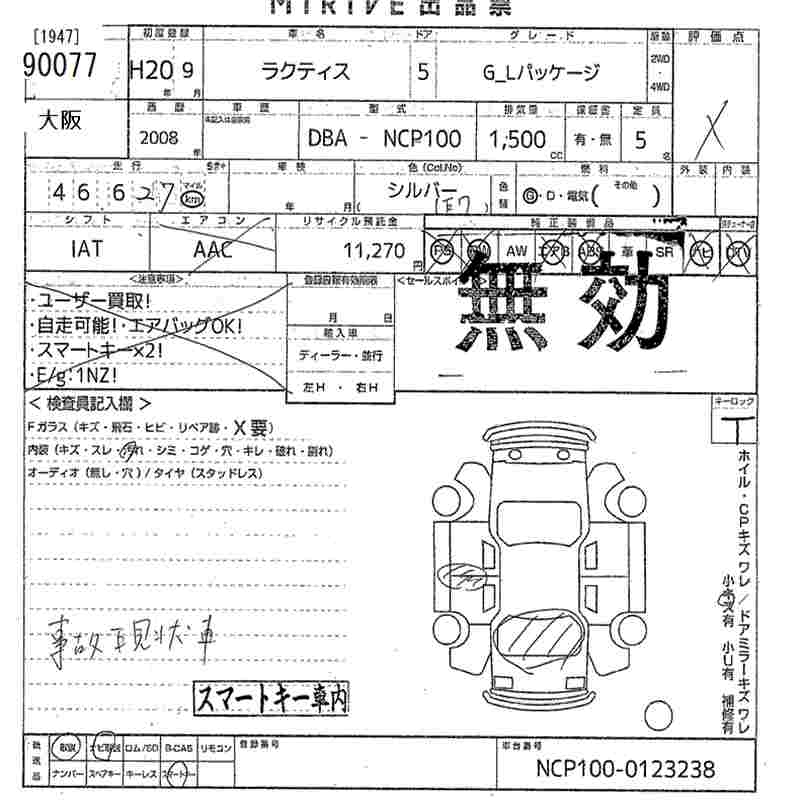 MIRIVE出品票
[1947]
90077
初度登録
H20 9
年 月
車名
ラクティス
ドア
5
グレード
G_Lパッケージ
2WD
・
4WD
評価点
X
大阪
西暦
2008
年
車歴
型式
DBA - NCP100
排気量
1,500
CC
保証書
有・無
定員
5
名
走行
4 6 6 2 7
マイル
km
車検
年 月
色(Col.No)
シルバー
(1E7)
色替
燃料
G・D・電気( その他 )
外装 内装
シフト
IAT
エアコン
AAC
リサイクル預託金
11,270
円
純正装備品
PS PW AW エアB ABS 革 SR ナビ TV
<注意事項>
・ユーザー買取!
・自走可能!・エアバッグOK!
・スマートキー×2!
・E/g:1NZ!
月 日
輸入車
ディーラー・並行
左H ・ 右H
<セールスポイント>
無効
<検査員記入欄>
Fガラス(キズ・飛石・ヒビ・リペア跡・X要)
内装(キズ・スレ・汚れ・シミ・コゲ・穴・キレ・破れ・割れ)
オーディオ(無し・穴)/タイヤ(スタッドレス)
キーロック
T
ホイル・CPキズワレ/ドアミラーキズワレ
小キズ有 小U有 補修有
事故現状車
スマートキー車内
後送品
取説 ナビ取説 ロム/SD B-CAS リモコン
ナンバー スペアキー キーレス スマートキー
登録番号
車台番号
NCP100-0123238